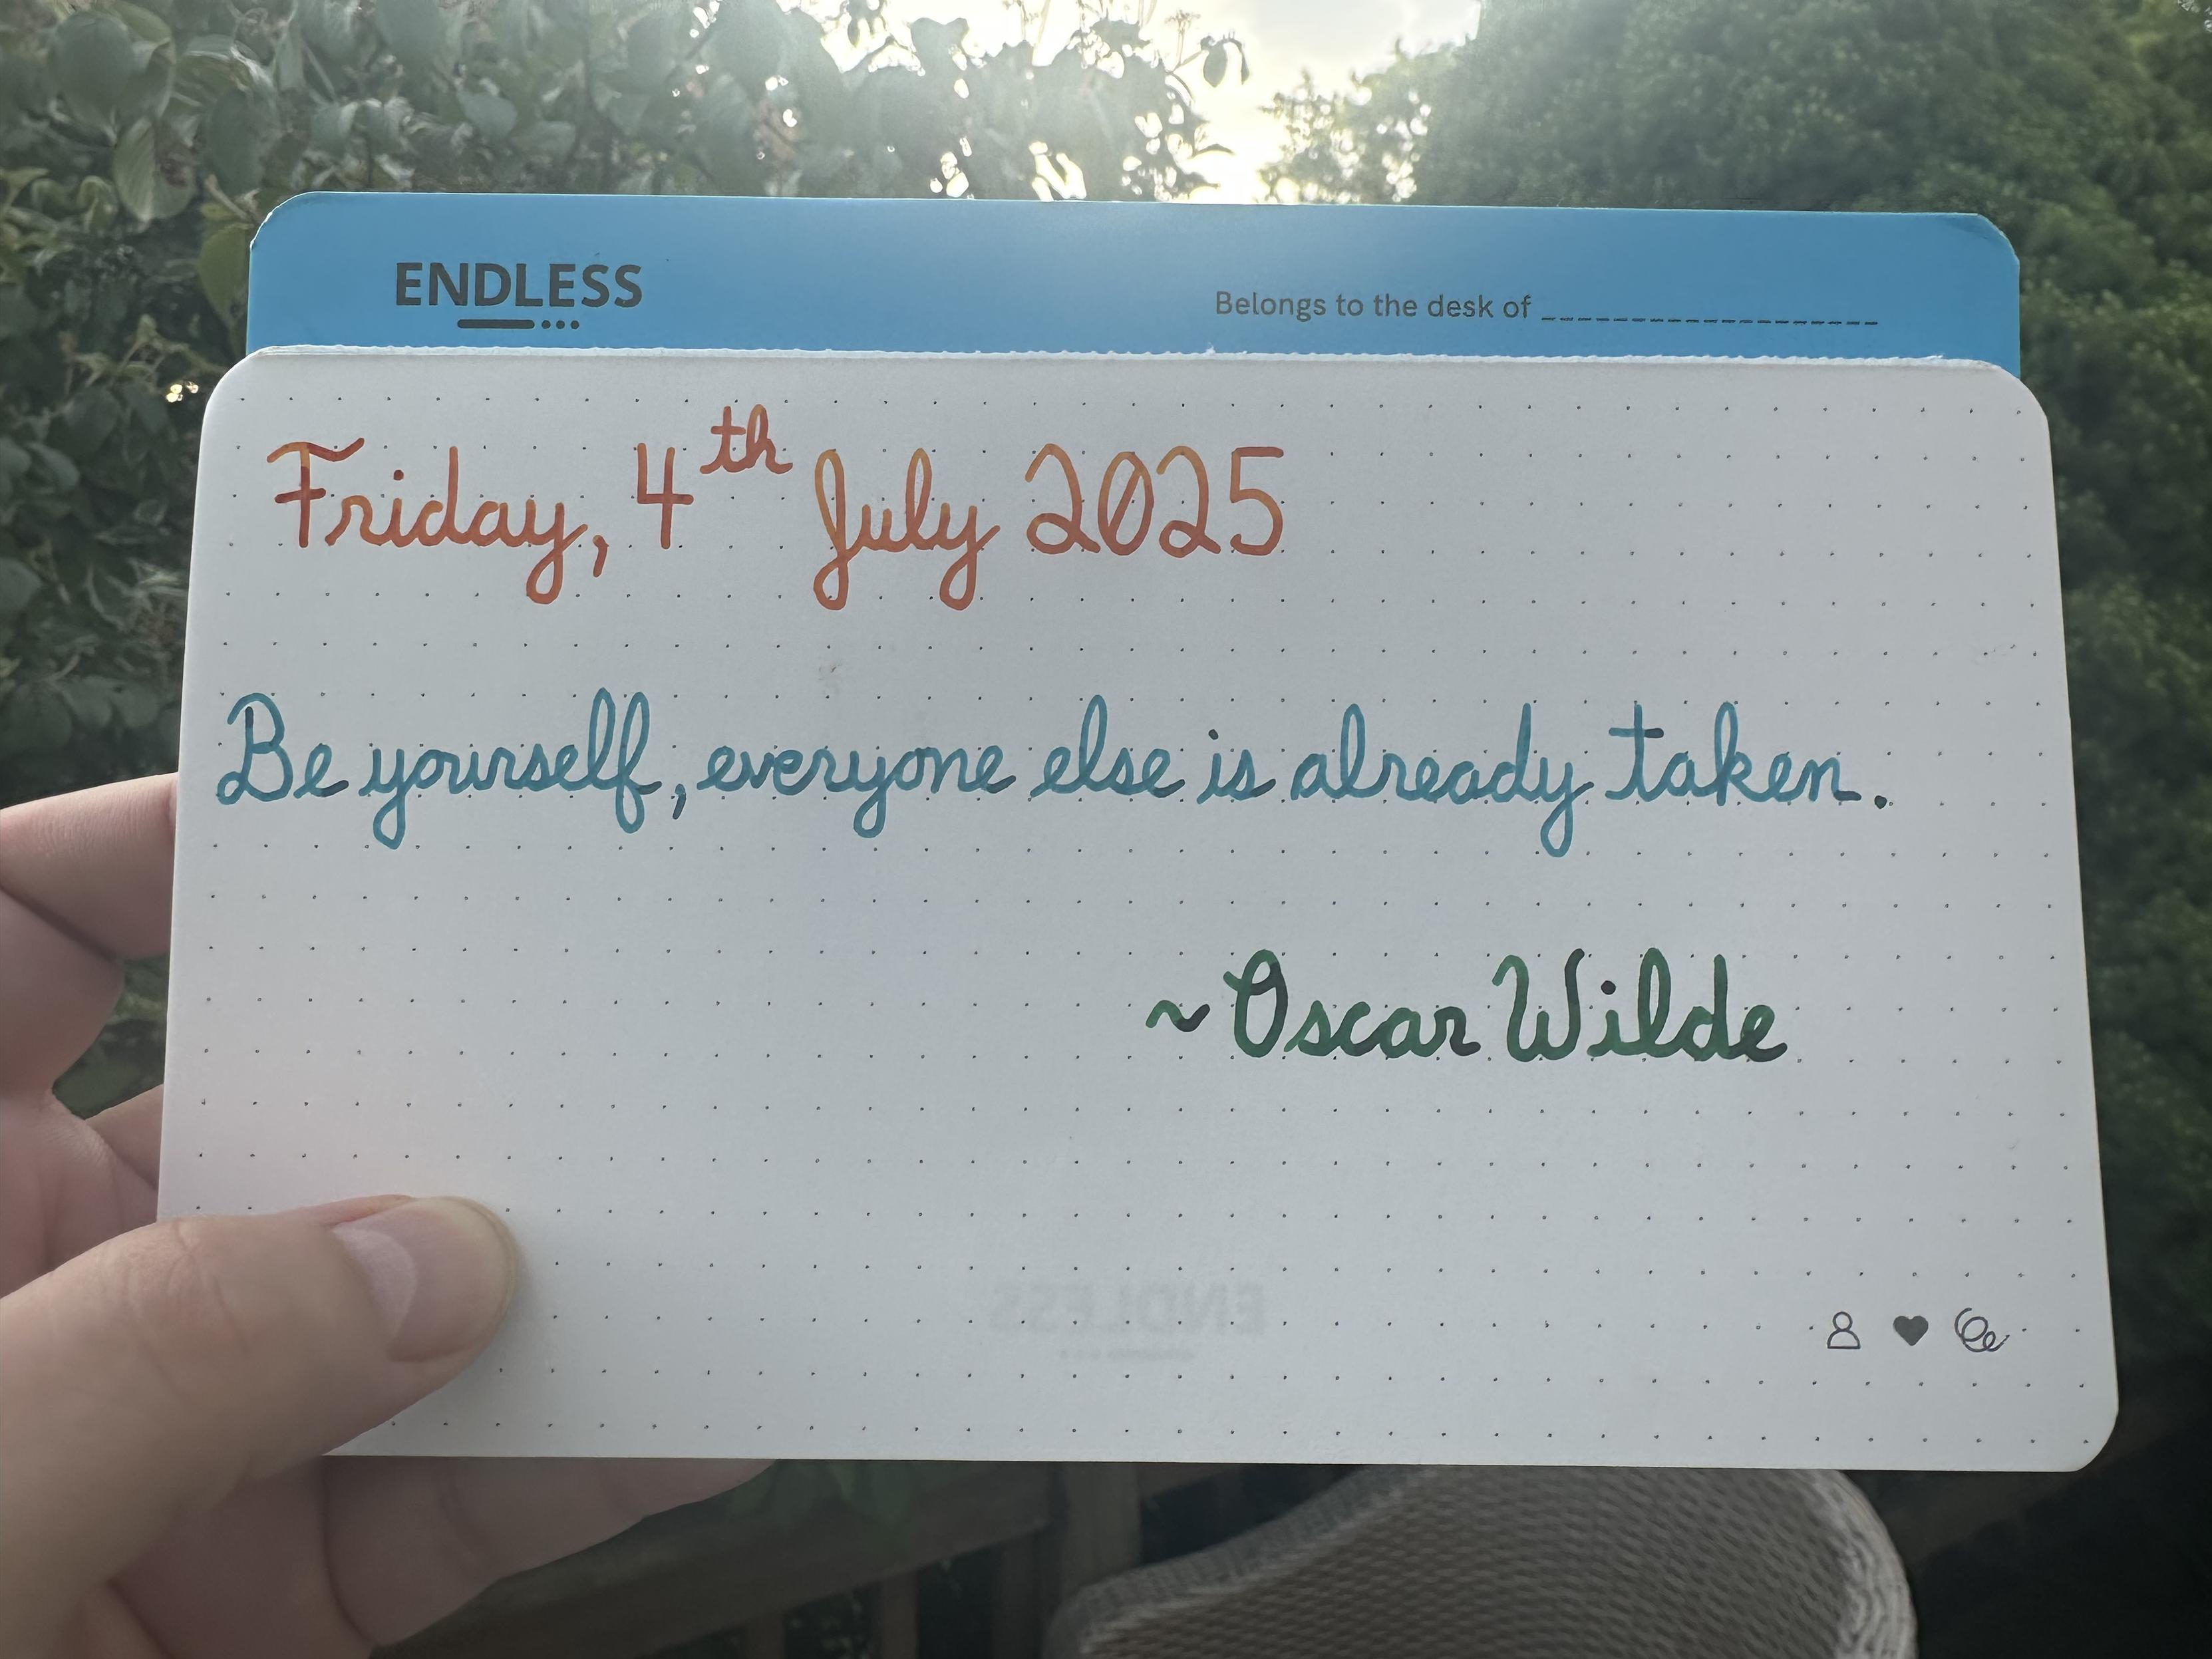 ENDLESS
Belongs to the desk of
Friday, 4th July 2025
Be yourself, everyone else is already taken.
~Oscar Wilde
ENDLESS